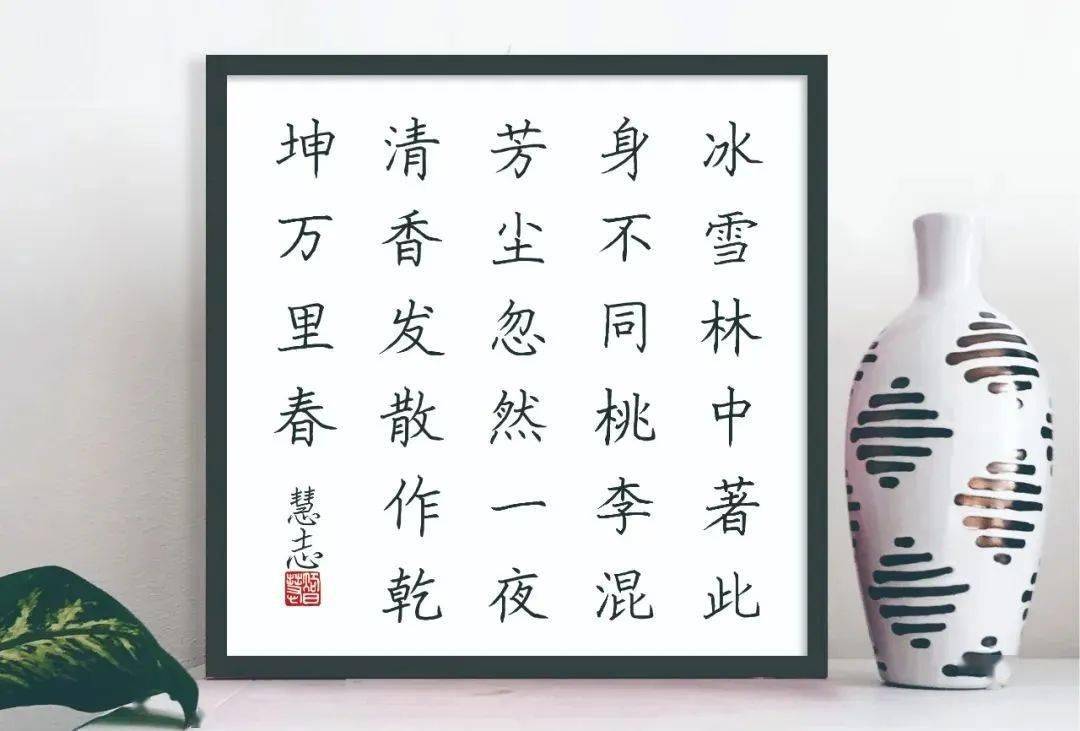 冰雪林中著此
身不同桃李混
芳尘忽然一夜
清香发散作乾
坤万里春
慧志